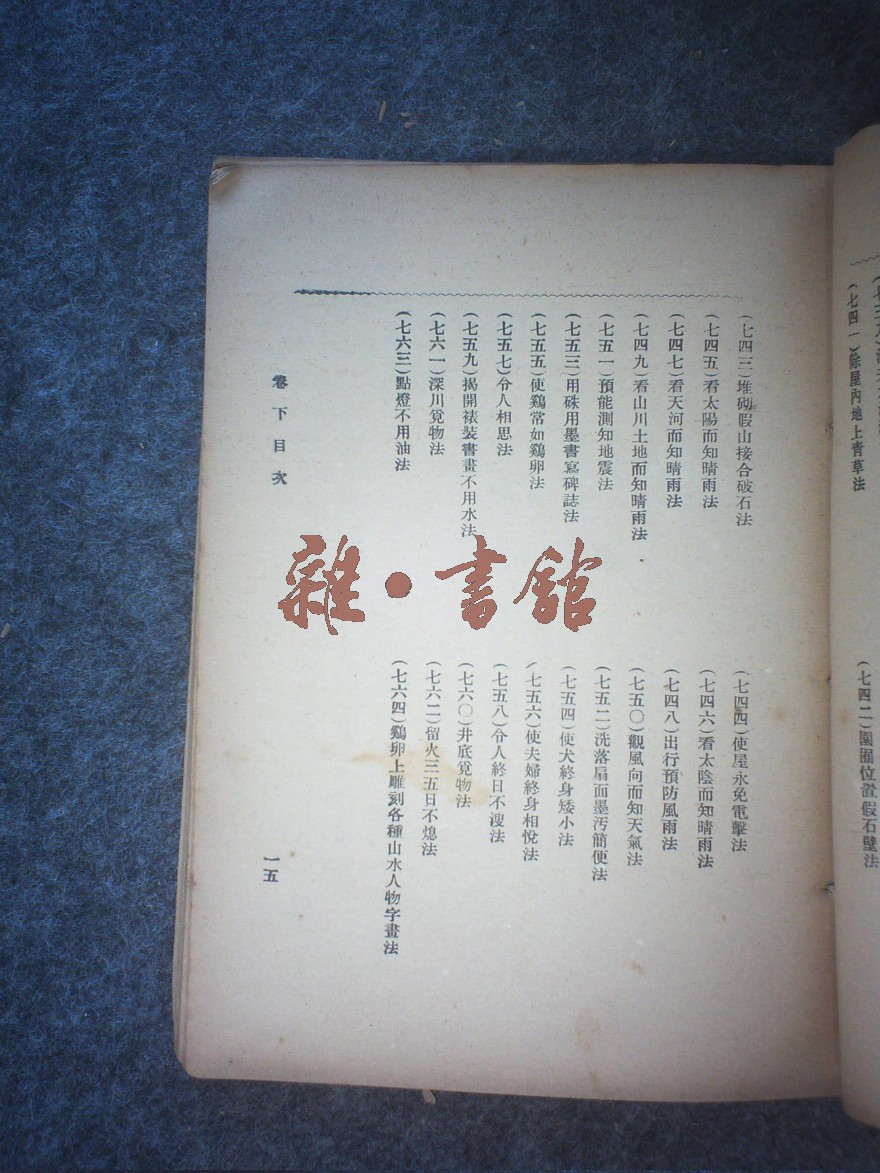 （七四一）除屋內地上青草法
（七四二）園囿位置假石壁法
（七四三）堆砌假山接合破石法
（七四四）使屋永免電擊法
（七四五）看太陽而知晴雨法
（七四六）看太陰而知晴雨法
（七四七）看天河而知晴雨法
（七四八）出行預防風雨法
（七四九）看山川土地而知晴雨法
（七五〇）觀風向而知天氣法
（七五一）預能測知地震法
（七五二）洗落扇面墨汚簡便法
（七五三）用硃用墨書寫碑誌法
（七五四）使犬終身矮小法
（七五五）使鷄常如鷄卵法
（七五六）使夫婦終身相悅法
（七五七）令人相思法
（七五八）令人終日不溲法
（七五九）揭開裱裝書畫不用水法
（七六〇）井底覓物法
（七六一）深川覓物法
（七六二）留火三五日不熄法
（七六三）點燈不用油法
（七六四）鷄卵上雕刻各種山水人物字畫法
卷下目次
一五
雜·書館